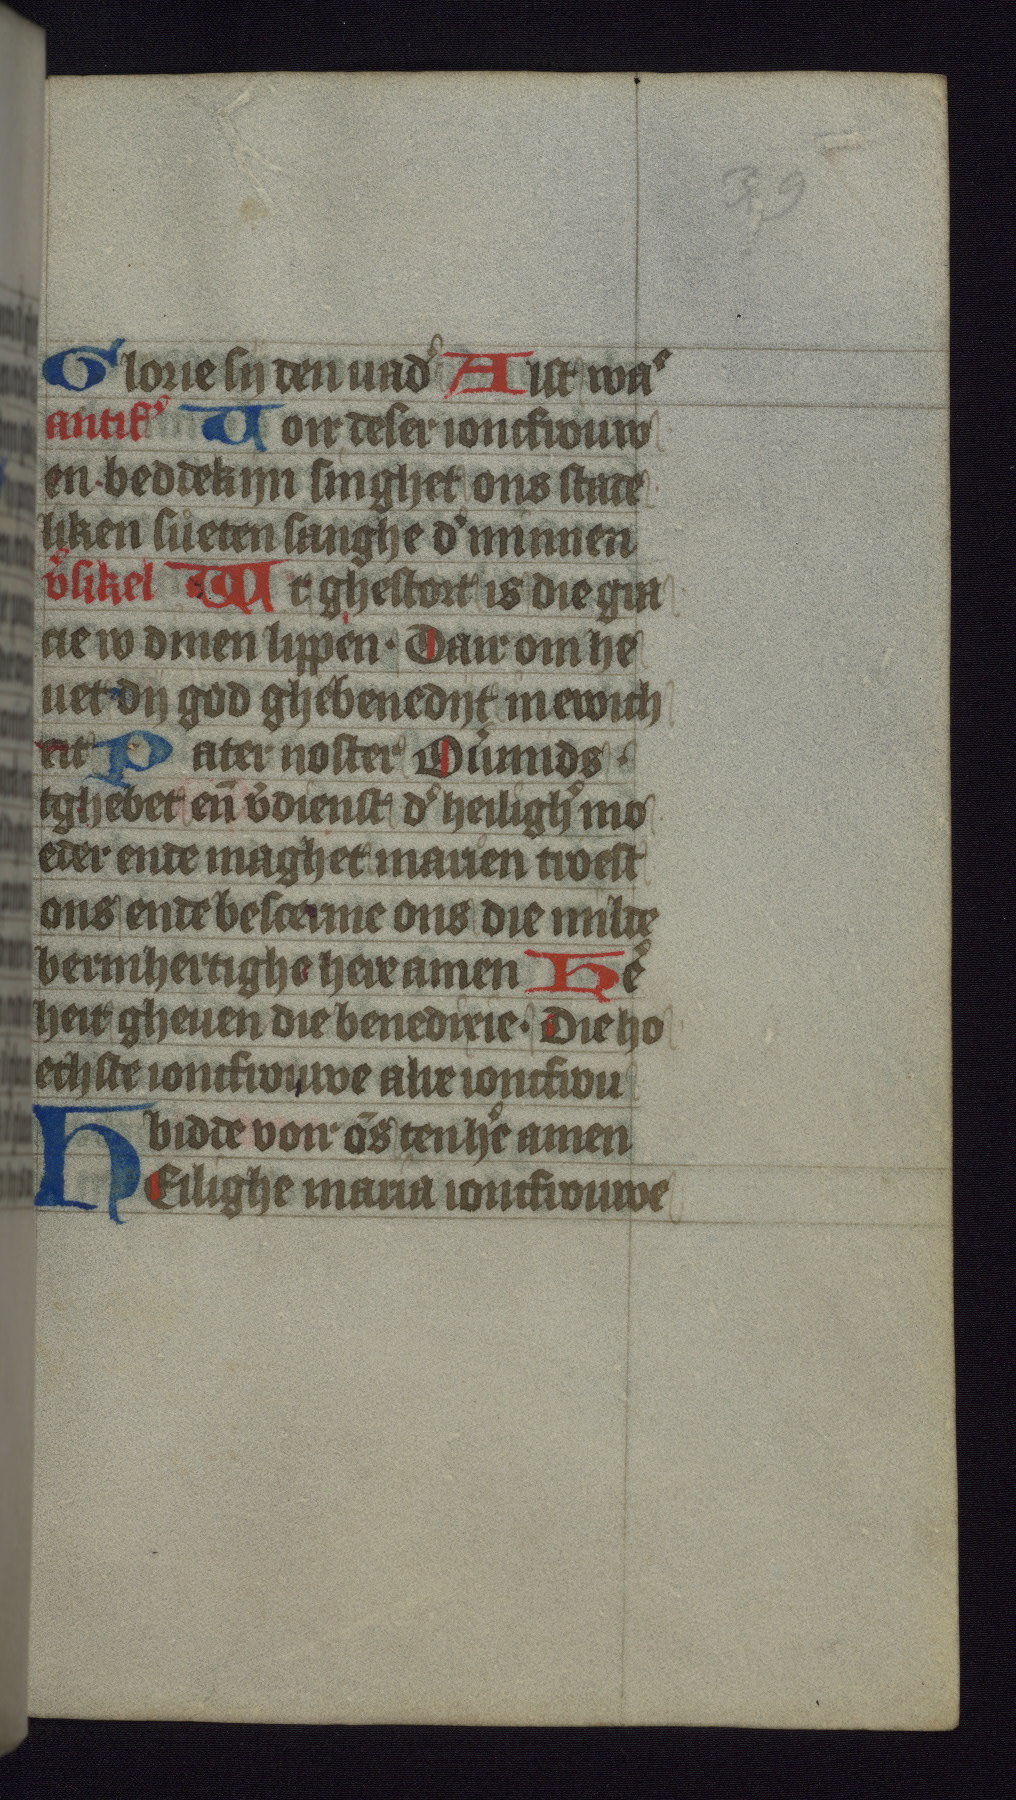 39
Glorie sy den uad' Alst wa'
antiff' Uoir deser ioncfrouw
en beddekijn singhet ons stade
liken sueten sanghe d' minnen
v'sikel Wt ghestort is die gra
cie w dinen lippen. Dair om he
uet dy god ghebenedijt in ewich
eit Pater noster Ou'mids
tghebet en̄ v'dienst d' heiligh' mo
eder ende maghet marien twest
ons ende bescerme ons die milde
bermhertighe here amen He'
heit gheuen die benedixie. Die ho
echste ioncfrouwe alre ioncfrou
bidde voir o̅s ten h'e amen
HEilighe maria ioncfrouwe